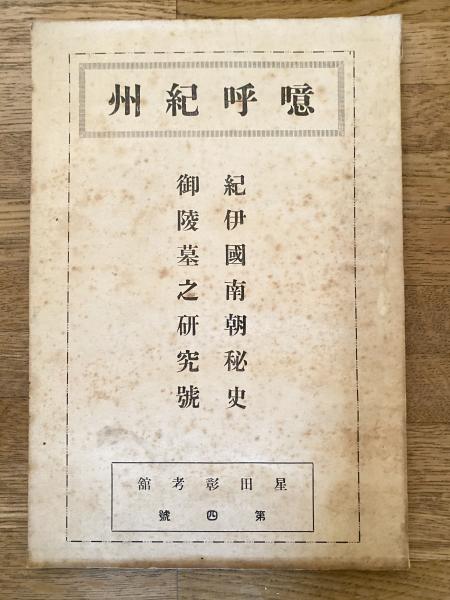 噫呼紀州
紀伊國南朝秘史
御陵墓之研究號
星田彰考舘
第四號